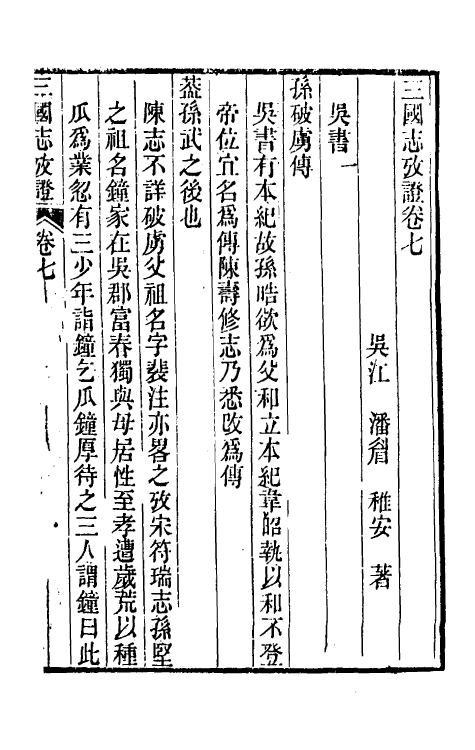 三國志攷證卷七
吳江　潘眉　稚安　著
吳書一
孫破虜傳
吳書有本紀故孫晧欲爲父和立本紀韋昭執以和不登
帝位宜名爲傳陳壽修志乃悉改爲傳
葢孫武之後也
陳志不詳破虜父祖名字裴注亦畧之攷宋符瑞志孫堅
之祖名鐘家在吳郡富春獨與母居性至孝遭歲荒以種
瓜爲業忽有三少年詣鐘乞瓜鐘厚待之三人謂鐘曰此
三國志攷證　卷七